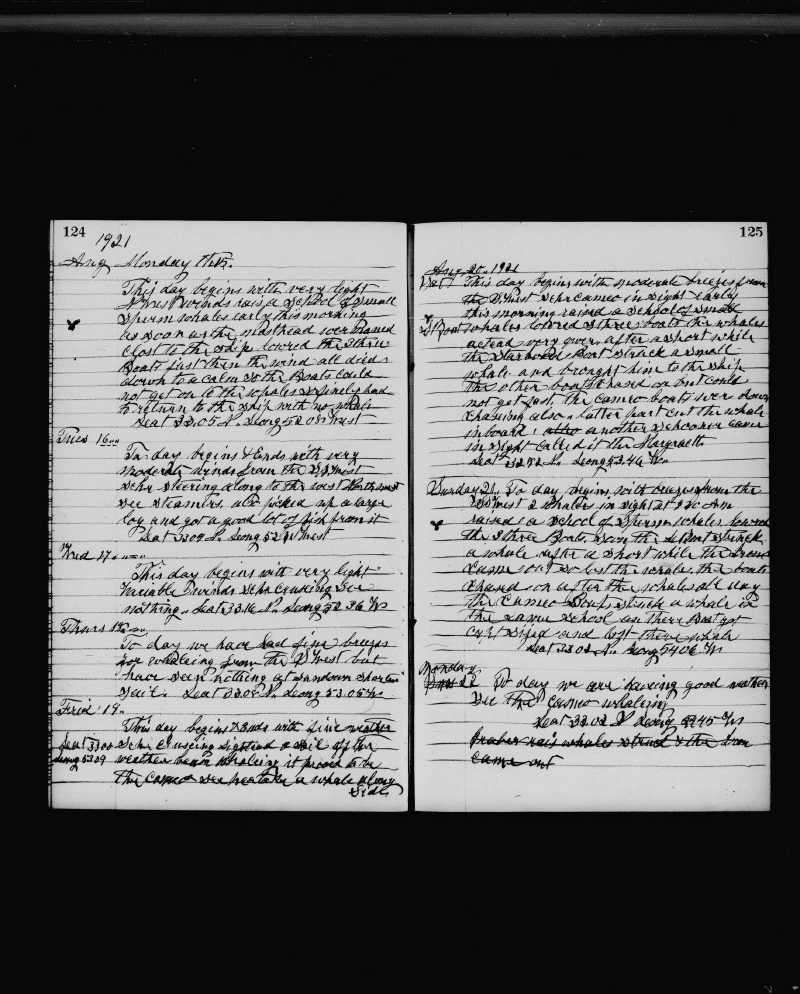 124
1921
Aug Monday the 15.
This day begins with very light
S West winds rais a School of Small
Sperm whales early this morning
as soon as the masthead wer maned
Close to the Ship lowred the three
Boats just then the wind all died
down to a calm So the Boats Could
not get on to the whales & finely had
to return to the Ship with no whale
Leat 33.05 N. Long 52.08 West
Tues 16
To day begins & Ends with very
moderate winds from the S S West
Schr Steering along to the west North west
see Steamers, all picked up a large
log and got a good lot of fish from it
Leat 33 09 N. Long 52 West
Wed 17
This day begins with very light
Variable winds Schr Cruseing See
nothing. Leat 33.16 N. Long 52 36 Ws
Thurs 18
To day we have had fine breezes
for whaleing from the S West but
have seen nothing at Sundown
Sail. Leat 33.05 N. Long 53.05 Ws
Frid 19.
This day begins & Ends with fine weather
Leat 33.00 Schr Cruseing Sighted a Sail off the
Long 53.09 weather beam whaleing it proved to be
the Cameo See her take a whale along
Side
125
Aug. 20. 1921
Sat This day begins with moderate breezes from
the S West Schr Cameo in Sight early
this morning raised a School of Small
S Boat whales lowred 3 three boats the whales
acteed very queer after a Short while
the Starboard Boat Struck a Small
whale and brought him to the Ship
the other boats chased on but could
not get fast, the Cameo boats wer down
chaseing also. latter part cut the whale
inboard, also another Schooner came
in Sight called it the Margarett.
Leat 33.52 N. Long 53.46 Ws.
Sunday 21. To day begins with breezes from the
West 2 whales in Sight at 9 30 Am
raised a School of Sperm whales lowred
the three Boats, Soon the S Boat Struck
a whale after a Short while the Iron
Came out So lost the whale, the boats
chased on after the whales all day
the Cameo Boats Struck a whale in
the Same School an there Boat got
capt Sized and lost there whale
Leat 33.02 N. Long 54 06 Ws
Monday
22 To day we are having good weather
See the Cameo whaleing
Leat 33.02 N Long 5245 Ws
rais whales Struck & the Iron
Came out